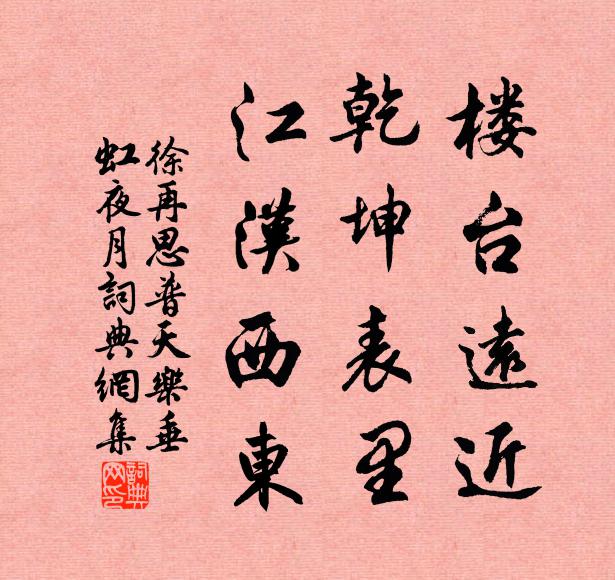 楼台遠近
乾坤表里
江漢西東
徐再思普天樂垂
虹夜月詞典網集
詞典网印